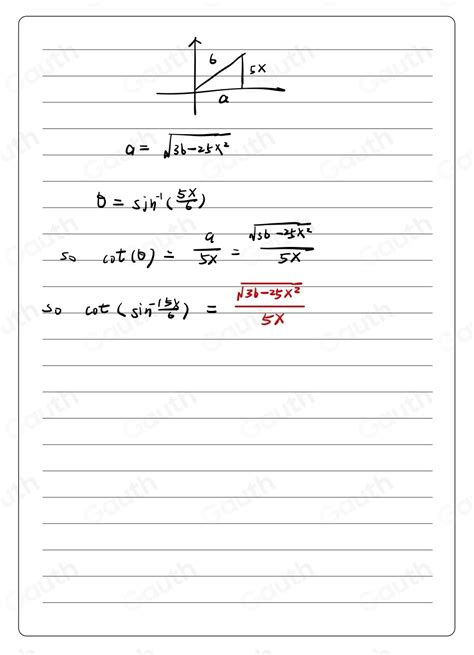 6
5x
a
a = √36-25x²
θ = sin⁻¹(5x/6)
so cot(θ) = a/5x = √36-25x²/5x
so cot(sin⁻¹5x/6) = √36-25x²/5x
Gauth